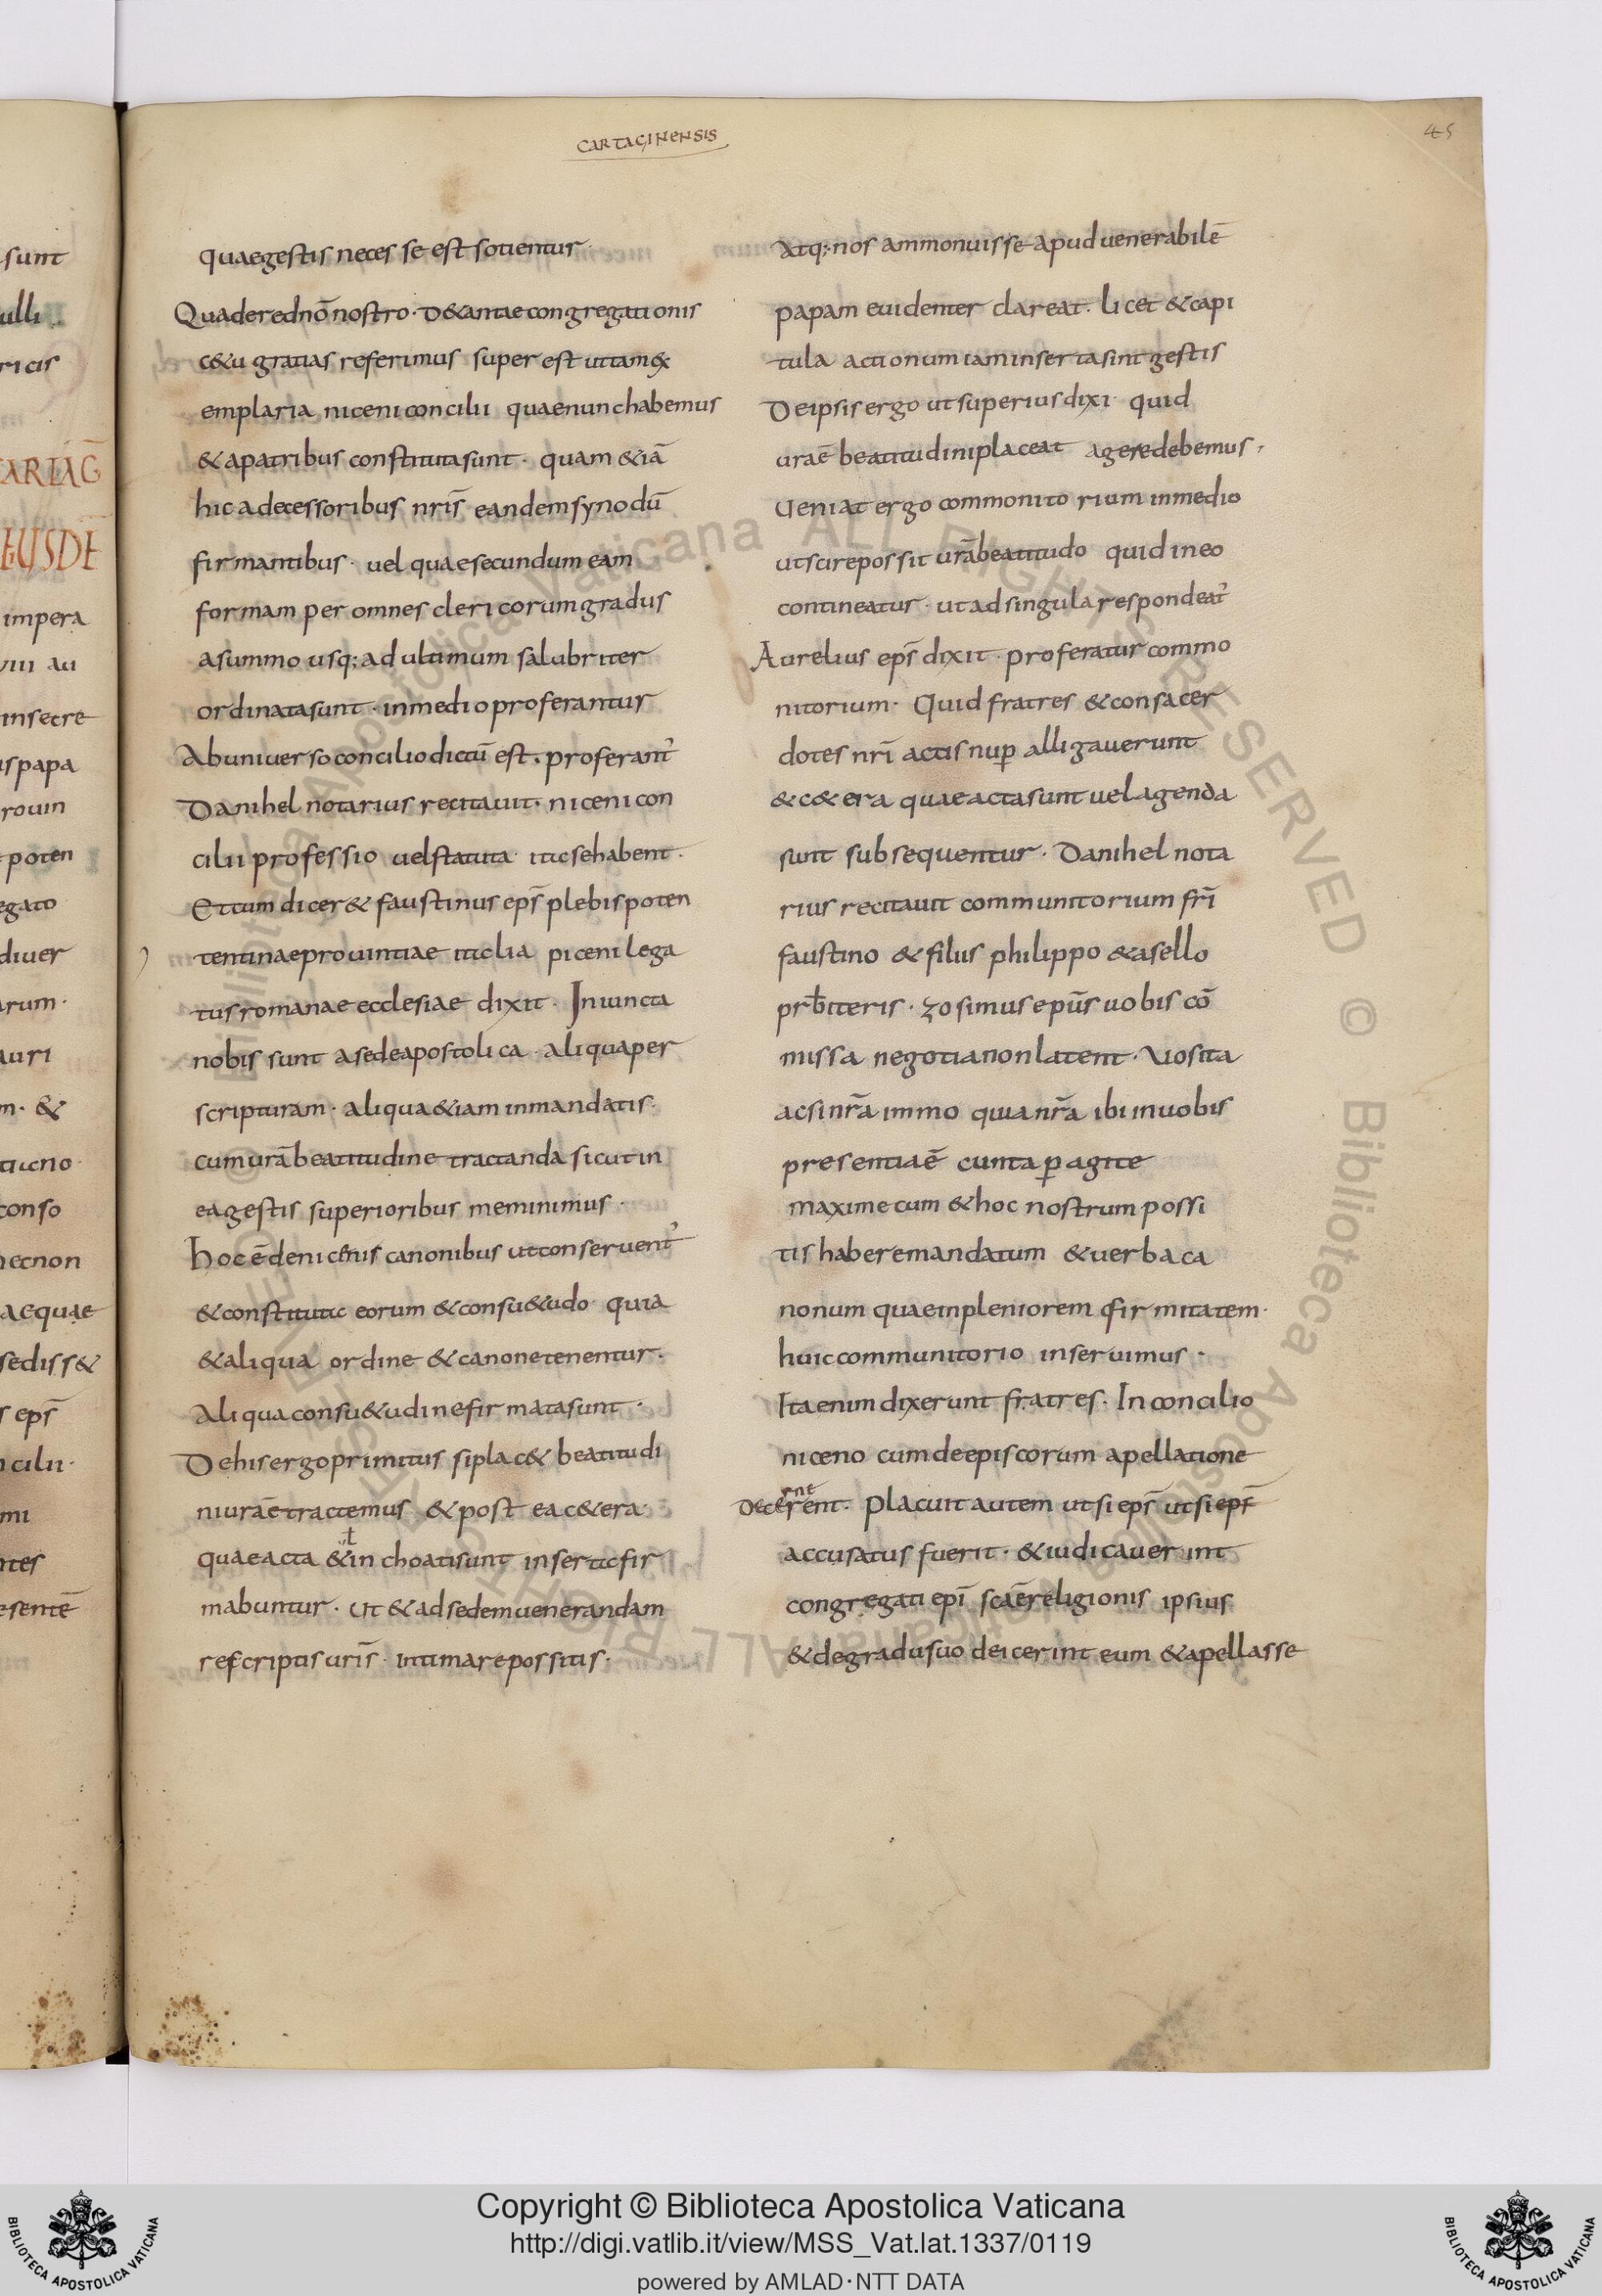 CARTAGINENSIS
45
quaegestis neces se est sotientur
Quaderednō nostro · D&antae congregationis
c&u gratias referimus super est uttam ex
emplaria niceni concilii quaenunchabemus
& apatribus constituta sunt · quam &iā
hic adecessoribus nr̄is eandem synodū
firmantibus · uel quaesecundum eam
formam per omnes clericorum gradus
asummo usq; ad ultimum salubriter
ordinatasunt · inmedio proferantur
Abuniuerso concilio dictū est · proferant᾿
Danihel notarius recitauit · niceni con
cilii professio uelstatuta itasehabent ·
Et cum dicer& faustinus ep̄s plebis poten
tentinaeprouintiae italia piceni lega
tus romanae ecclesiae dixit · Iniuncta
nobis sunt asedeapostolica · aliquaper
scripturam · aliqua&iam inmandatis ·
cum urā beatitudine tractanda sicut in
eagestis superioribus meminimus ·
hoc ē denicenis canonibus utconseruent᾿
& constituta eorum & consu&udo quia
& aliqua ordine & canonetenentur ·
Aliqua consu&udinefirmatasunt ·
Dehis ergoprimitus siplac& beatitudi
niuraē tractemus & post ea c&era
quaeacta &in choatisunt inserta fir
mabuntur · Ut & adsedemuenerandam
rescriptis uris̄ · intimarepossitis ·
Atq; nos ammonuisse apud uenerabilē
papam euidenter clareat · licet & capi
tula actionum iaminserta sint gestis
Deipsis ergo ut superius dixi quid
uraē beatitudiniplaceat ageredebemus ·
Ueniat ergo commonitorium inmedio
utscirepossit urā beatitudo quid ineo
contineatur · ut ad singula respondeat᾿
Aurelius ep̄s dixit · proferatur commo
nitorium · Quid fratres & consacer
dotes nr̄i actis nup alligauerunt
& c&era quaeactasunt uel agenda
sunt subsequentur · Danihel nota
rius recitauit communitorium fr̄i
faustino & filiis philippo & asello
prb̄iteris · zosimus epūs uobis cō
missa negotia non latent · Uosita
acsi nr̄a immo quia nr̄a ibi inuobis
presentiaē cunta p agite
maxime cum & hoc nostrum possi
tis haberemandatum & uerba ca
nonum quaeinpleniorem firmitatem ·
huic communitorio inseruimus ·
Ita enim dixerunt fratres · In concilio
niceno cum deepiscorum apellatione
decer̄ent · Placuit autem ut si ep̄s ut si ep̄s
accusatus fuerit · & iudicauerint
congregati epī scaē religionis ipsius
& degradusuo deicerint eum & apellasse
sunt
ulli
ricis
ARIAG
EIUSDE
impera
VIII au
insecre
uspapa
rouin
poten
egato
diuer
arum ·
auri
m · &
conso
necnon
aequae
sediss&
s ep̄s
ncilii ·
mi
ntes
esentē
Biblioteca Apostolica Vaticana ALL RIGHTS RESERVED ©
Copyright © Biblioteca Apostolica Vaticana
http://digi.vatlib.it/view/MSS_Vat.lat.1337/0119
powered by AMLAD·NTT DATA
BIBLIOTECA APOSTOLICA VATICANA
BIBLIOTECA APOSTOLICA VATICANA